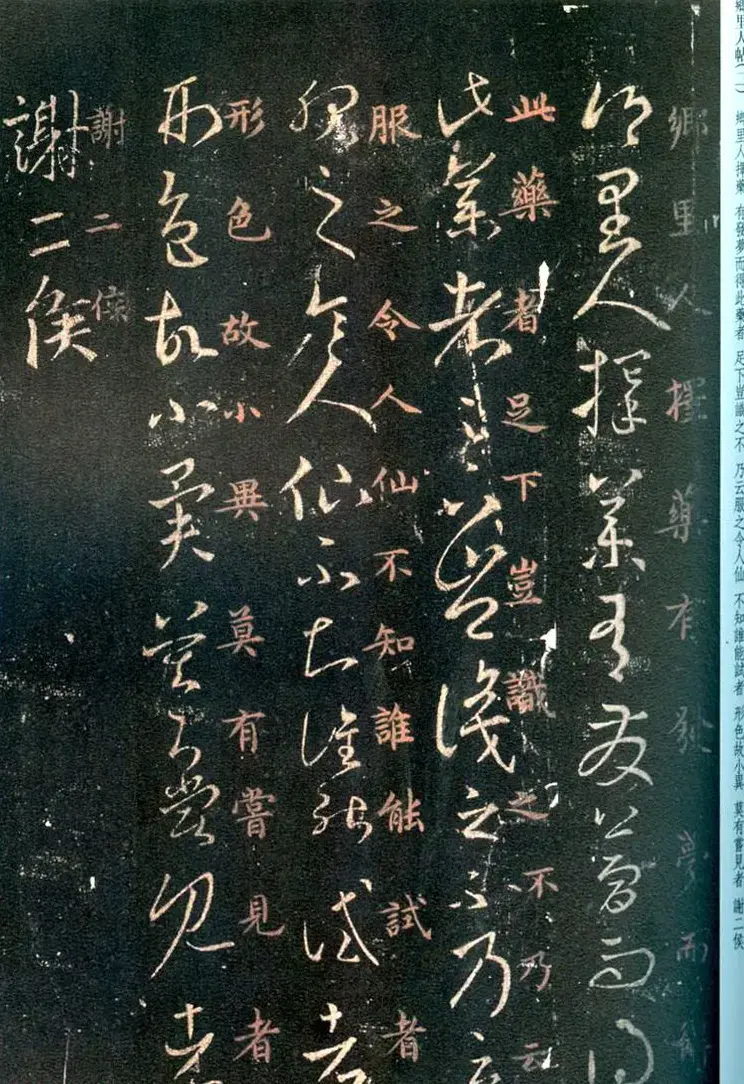 鄉里人帖(一) 鄉里人擇藥 有發夢而得此藥者 足下豈識之不 乃云服之令人仙 不知誰能試者 形色故小異 莫有嘗見者 謝二侯
鄉里人擇藥有發夢而得
鄉里人擇藥有發夢而得
此藥者足下豈識之不乃云
此藥者足下豈識之不乃云
服之令人仙不知誰能試者
服之令人仙不知誰能試者
形色故小異莫有嘗見者
形色故小異莫有嘗見者
謝二侯
謝二侯